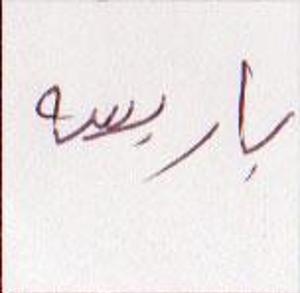 باريسه